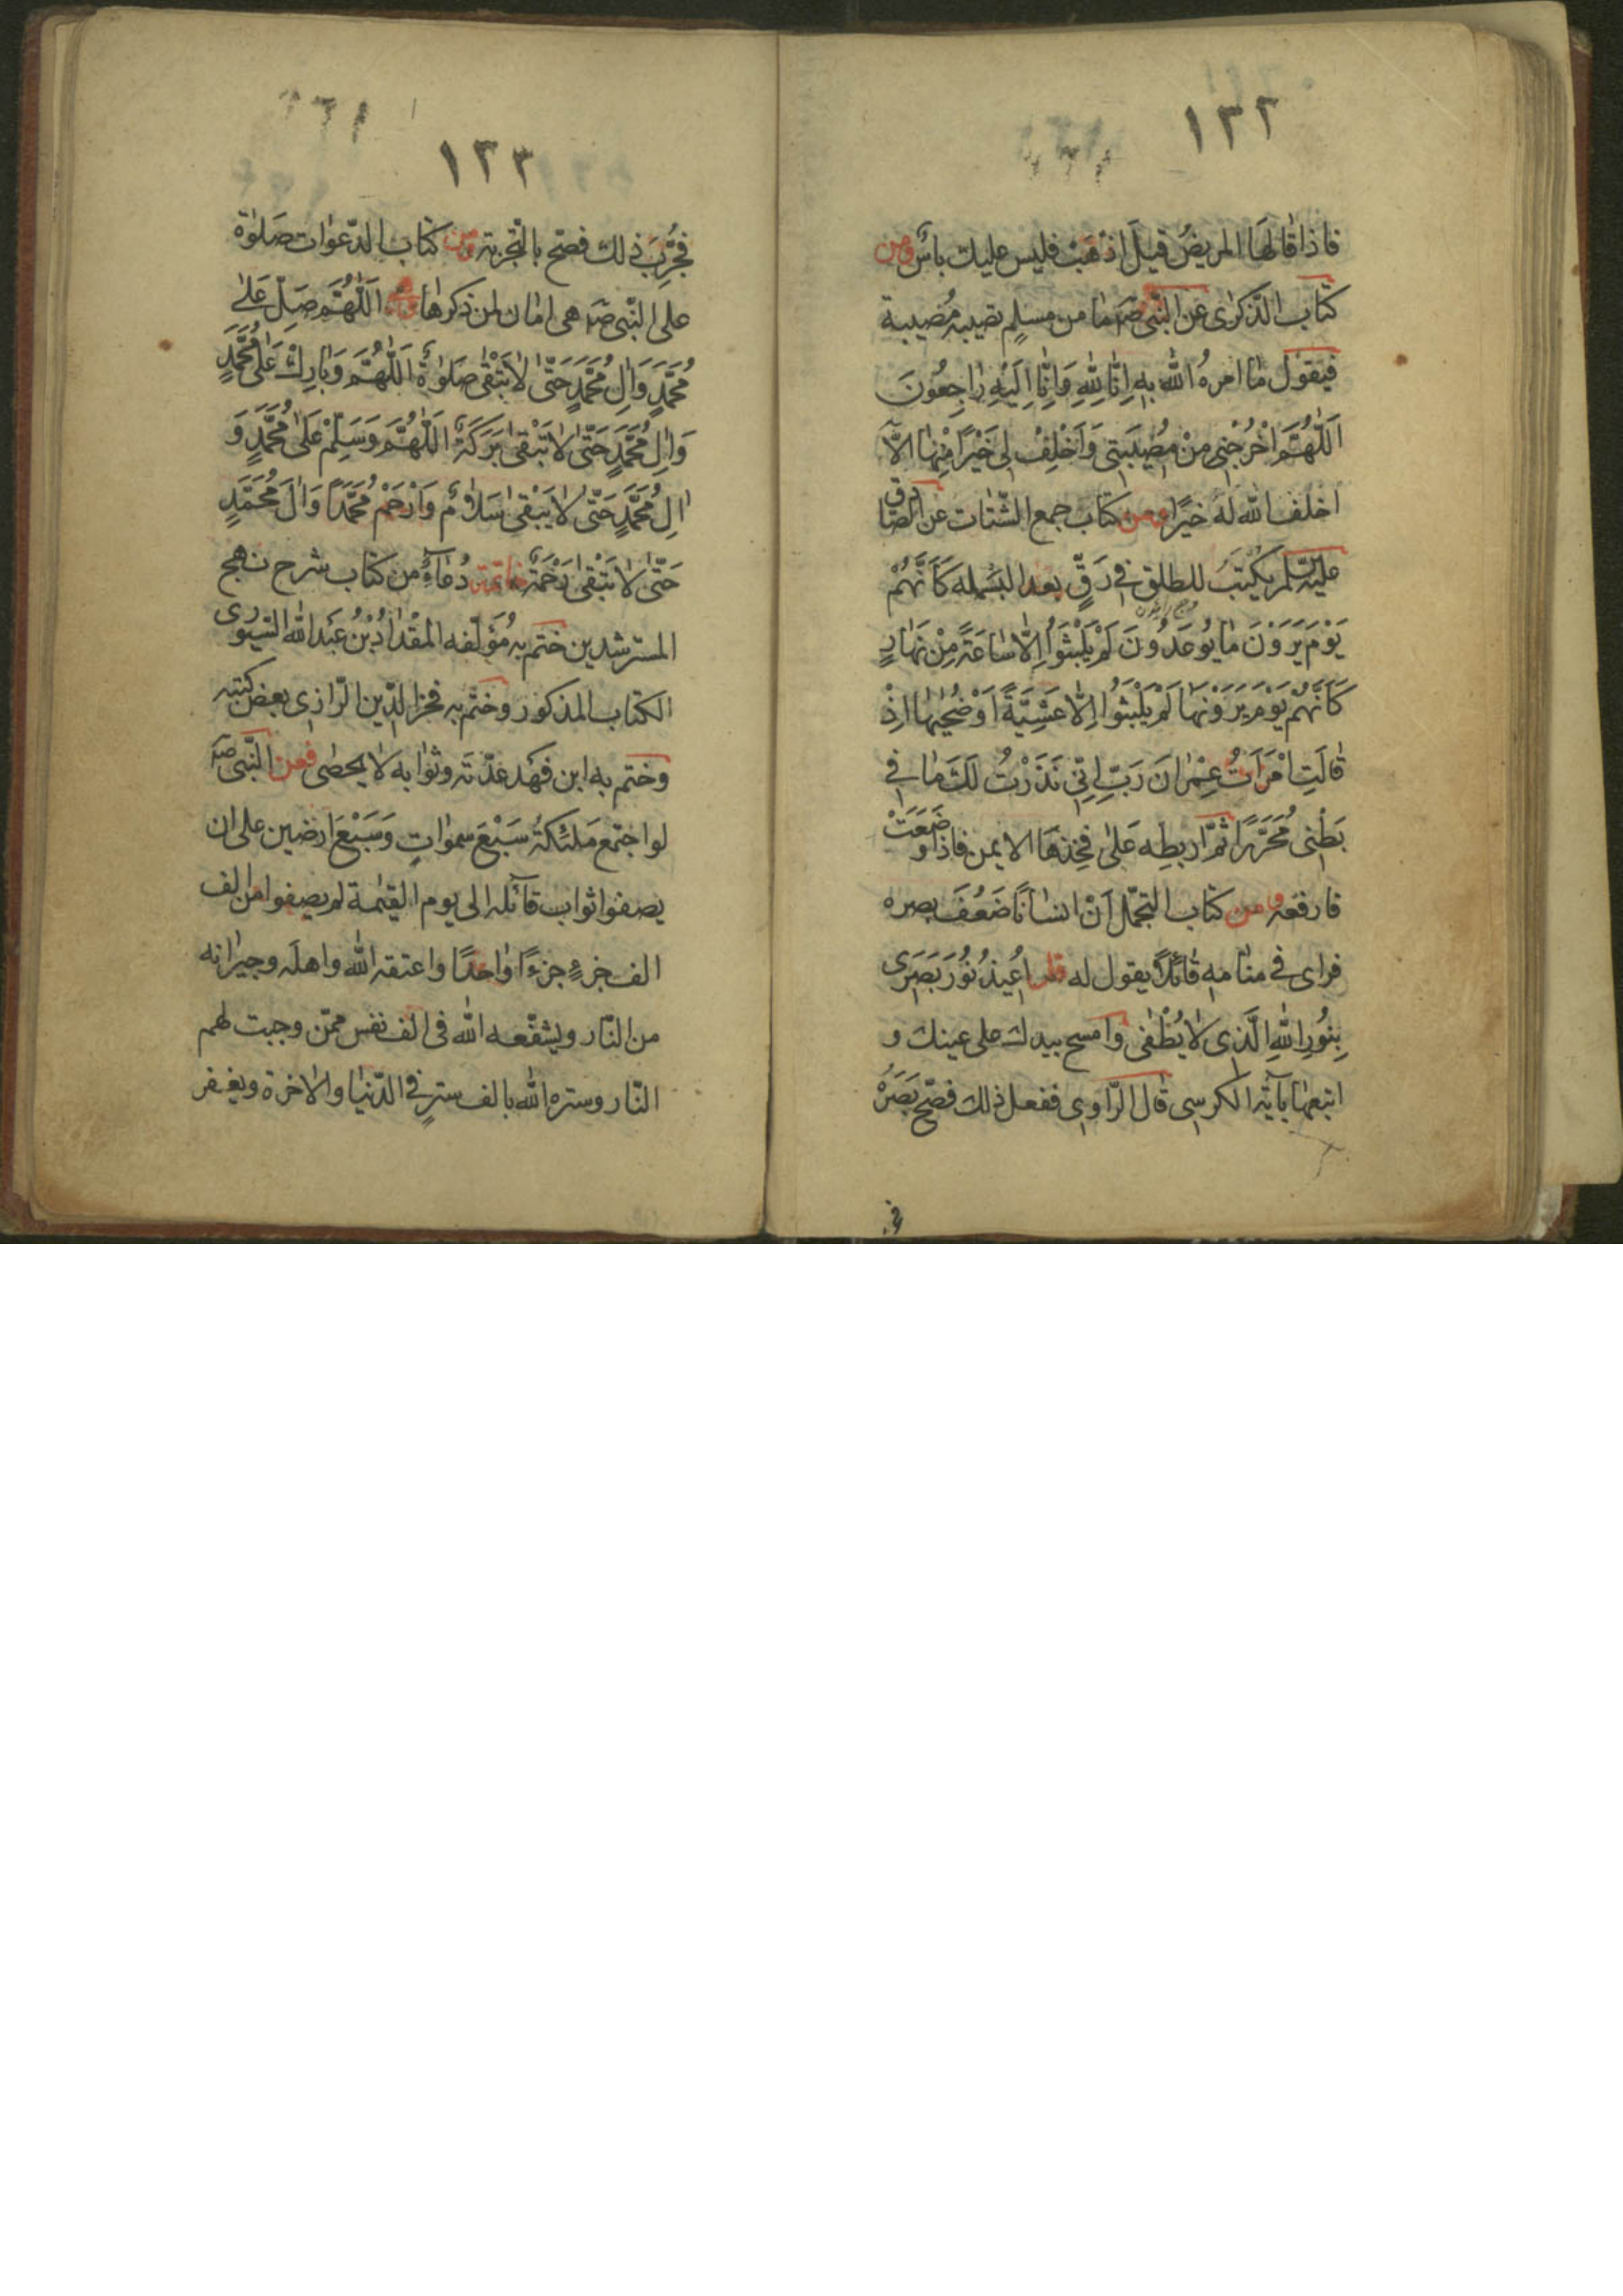 ١٢٢
فاذا قالها المريض قيل اذهب فليس عليك باس ومن
كتاب الذكرى عن النبى صم ما من مسلم تصيبه مصيبة
فيقول ما امره الله به اِنّا لِلّٰهِ وَاِنّا اِلَيْهِ رٰاجِعُونَ
اَللّٰهُمَّ اْجُرْنِى مِنْ مُصِيبَتِى وَاَخْلِفْ لِى خَيْرًا مِنْهٰا الاّ
اخلف الله له خيرًا ومن كتاب جمع الشتات عن الصادق
عليه السلم يكتب للطلق فى رَقٍّ بعد البسمله كَاَنَّهُمْ
يَوْمَ يَرَوْنَ مٰا يُوعَدُونَ لَمْ يَلْبَثُوا اِلّٰا سٰاعَةً مِنْ نَهٰارٍ
كَاَنَّهُمْ يَوْمَ يَرَوْنَهٰا لَمْ يَلْبَثُوا اِلّٰا عَشِيَّةً اَوْ ضُحٰيهٰا اِذْ
قٰالَتِ امْرَاَتُ عِمْرٰانَ رَبِّ اِنِّى نَذَرْتُ لَكَ مٰا فِى
بَطْنِى مُحَرَّرًا ثمّ اربطه عَلىٰ فخِذهَا الايمن فاذا وضَعَتْ
فارفعه ومن كتاب التجمّل اَنّ انسٰانًا ضَعُفَ بصره
فراى فى منٰامهِ قٰائلاً يقول له قل اُعِيذُ نُورَ بَصَرِى
بِنُورِ اللّٰهِ الَّذِى لاٰ يُطْفٰى وامسح بيدك على عينك و
اتبعهٰا بآية الكرسى قٰال الرّاوى ففعل ذلك فصَحّ بَصَرُهُ
١٢٣
فجُرِّبَ ذلك فصحّ بالتجربة ومن كتاب الدّعوات صَلوٰة
على النّبى صم هى امٰان لمن ذكرها اَللّٰهُمَّ صَلِّ عَلىٰ
مُحَمَّدٍ وَاٰلِ مُحَمَّدٍ حَتّٰى لاٰ تَبْقٰى صَلوٰةٌ اَللّٰهُمَّ وَبٰارِكْ عَلٰى مُحَمَّدٍ
وَاٰلِ مُحَمَّدٍ حَتّٰى لاٰ تَبْقٰى بَرَكَةٌ اَللّٰهُمَّ وَسَلِّمْ عَلىٰ مُحَمَّدٍ وَ
اٰلِ مُحَمَّدٍ حَتّٰى لاٰ يَبْقٰى سَلاٰمٌ وَارْحَمْ مُحَمَّدًا وَاٰلَ مُحَمَّدٍ
حَتّٰى لاٰ تَبْقٰى رَحْمَةٌ خاتمة دُعآءٌ من كتاب شرح نهج
المسترشدين ختم به مُؤَلّفه المقدٰادُ بْنُ عَبد الله السّيورى
الكتاب المذكور وختم به فخر الدّين الرّازى بعض كتبه
وختم به ابن فهَد عدّته وثوٰابه لاٰ يحصٰى فعن النّبى صم
لو اجتمع مَلئكةُ سَبْعَ سموٰاتٍ وَسَبْعَ ارضين على ان
يصفوا ثواب قآئله الى يوم القيٰمة لم يصفوا من الف
الف جزءٍ جزءًا واحدًا واعتقه الله واهله وجيرٰانه
من النّار ويشفّعه الله فى الف نفس ممّن وجبت لهم
النّار وستره الله بالف سترٍ فى الدّنيٰا والاٰخرة ويغفر